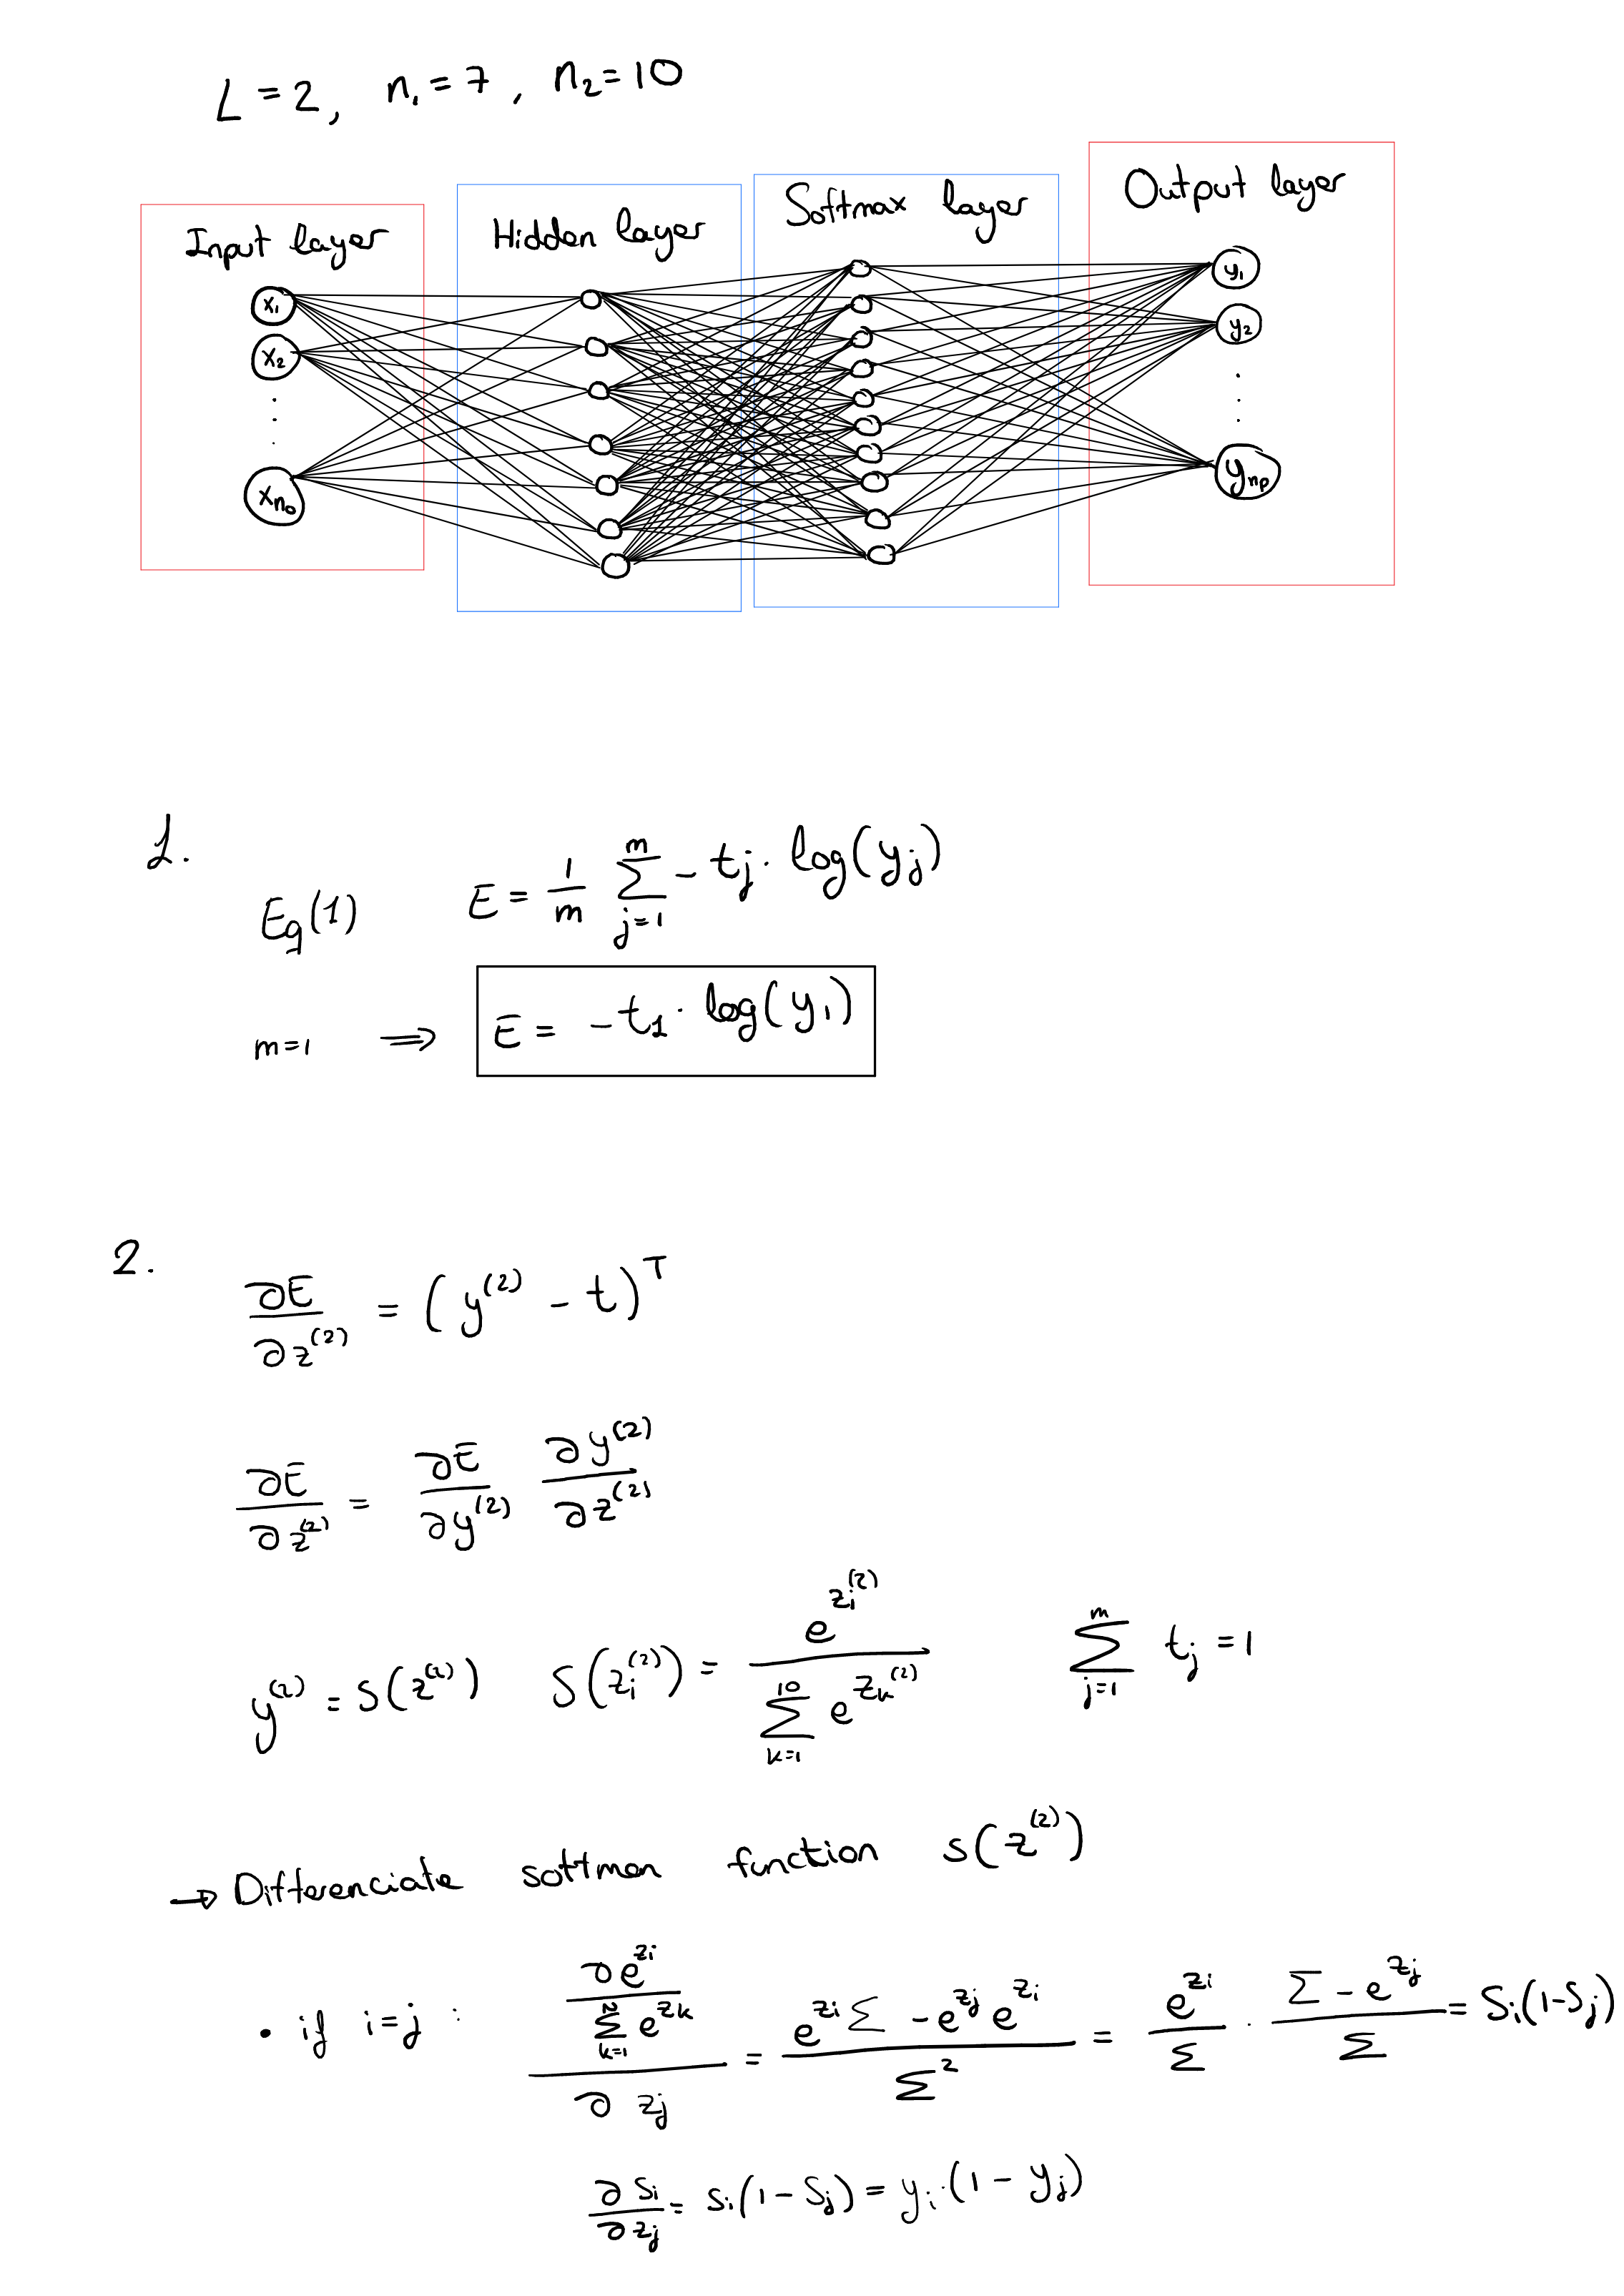 L = 2, n₁ = 7, n₂ = 10
Input layer Hidden layer Softmax layer Output layer
x₁ y₁
x₂ y₂
xₙ₀ yₙₚ
1.
Eq(1) E = 1/m ∑_{j=1}^{m} - tⱼ · log(yⱼ)
m=1 ⟹ E = -t₁ · log(y₁)
2.
∂E/∂z⁽²⁾ = (y⁽²⁾ - t)ᵀ
∂E/∂z⁽²⁾ = ∂E/∂y⁽²⁾ ∂y⁽²⁾/∂z⁽²⁾
y⁽²⁾ = S(z⁽²⁾) S(zᵢ⁽²⁾) = e^{zᵢ⁽²⁾} / ∑_{k=1}^{10} e^{zₖ⁽²⁾} ∑_{j=1}^{m} tⱼ = 1
→ Differenciate softmax function s(z⁽²⁾)
• if i=j : ∂(e^{zᵢ} / ∑_{k=1}^{N} e^{zₖ}) / ∂zⱼ = (e^{zᵢ} ∑ - e^{zⱼ} e^{zᵢ}) / ∑² = e^{zᵢ}/∑ · (∑ - e^{zⱼ})/∑ = Sᵢ(1-Sⱼ)
∂Sᵢ/∂zⱼ = Sᵢ(1 - Sⱼ) = yᵢ·(1 - yⱼ)